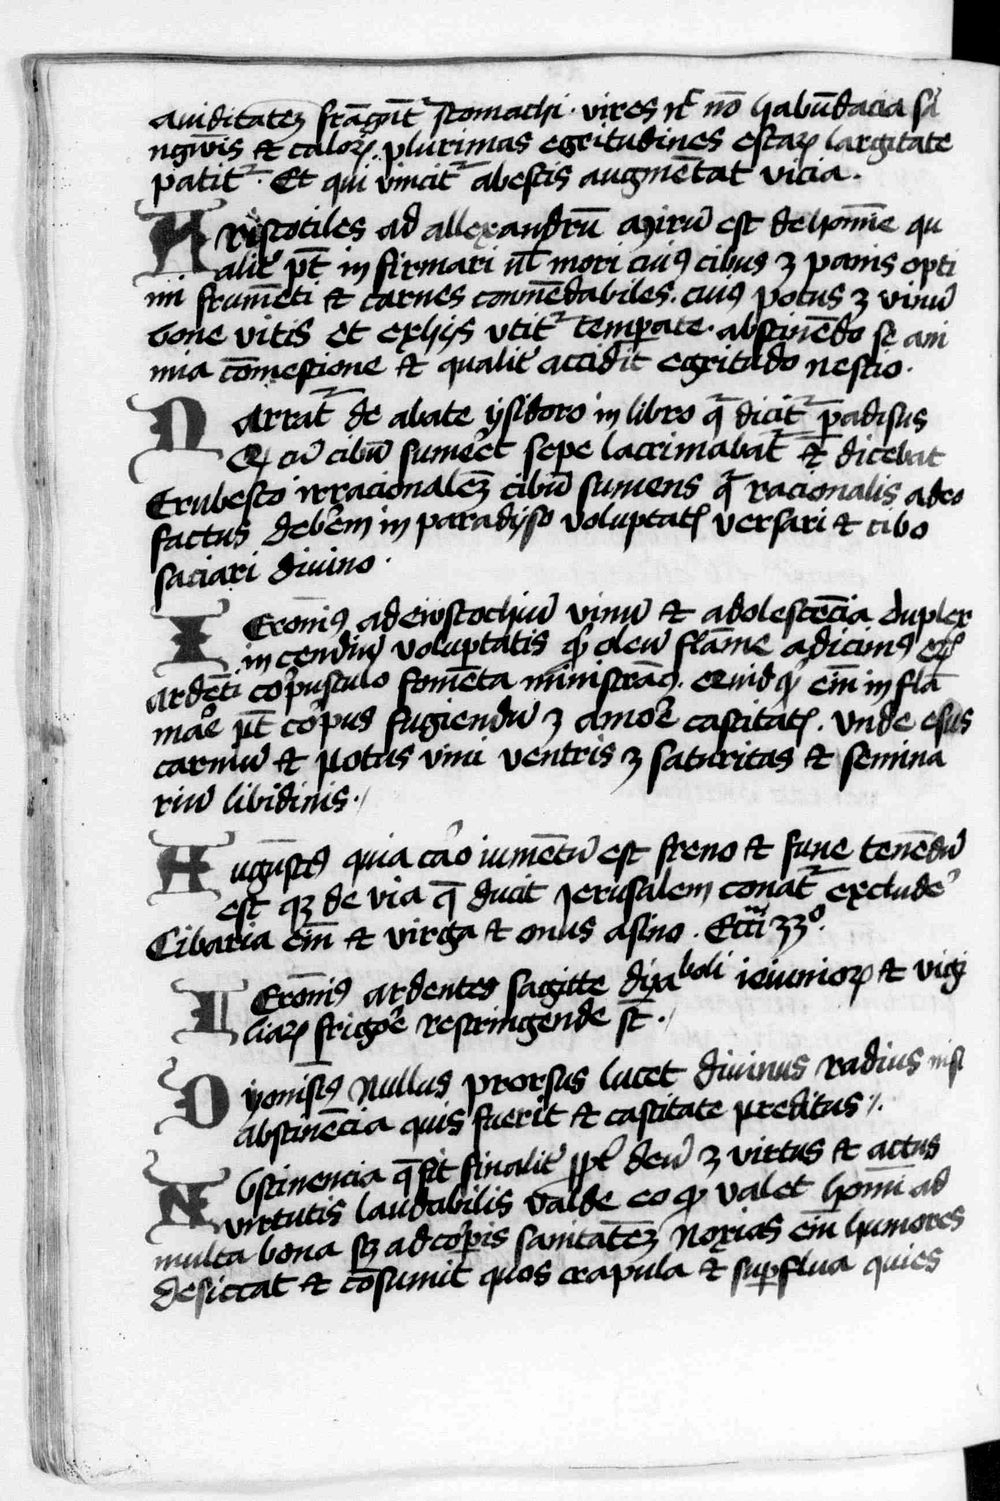 auiditatēz frāgūt᷑ stomachi · vires n̄c nō habūdacia sā
ngwīs et calorꝫ plurimas egritudines escaꝝ largitate
patit᷑ · Et qui vincit᷑ abescis augmētat vicia ·
Aristotiles ad allexandrū Mirū est de hom̄ie qu
alit̄ pt̄ in firmari ul̄ mori cuiꝰ cibus ꝫ panis opti
mi frum̄eti et carnes com̄edabiles · cuiꝰ potus ꝫ vinū
bone vitis et ex hijs vtit᷑ temꝑate · abstinēdo se a ni
mia cōmestione et qualit̄ accidit egritudo nescio ·
Narrat᷑ de abate ysidoro in libro q̄ dicit᷑ ꝑadisus
Qꝫ cū cibū sum̄et sepe lacrimabat᷑ et dicebat
Erubesco irracionalēz cibū sumens q̄ racionalis a deo
factus deb̄em in paradyso voluptatꝭ versari et cibo
saciari diuino ·
Ieronīꝰ ad ewstochiū vinū et adolescēcia duplex
in cendiū voluptatis qͥd oleū flāme adicimꝰ
ardēti corpusculo fomēta ministramꝰ · em̄ in flā
mare pt̄ corpus fugiendū ꝫ amore castitatꝭ · Vnde esus
carniū et potus vini ventris ꝫ saturitas et semina
riū libidinis ·/
Augustꝰ quia caro iumētū est freno et fune tenēdū
est qꝫ de via q̄ ducit Jerusalem conat᷑ exclude᷑
Cibaria em̄ et virga et onus asino · Ecc̄i 33º ·
Ieronīꝰ ardentes sagitte dyaboli ieiunioꝝ et vigi
liaꝝ frigore restringende st̄ ·/
Dyonisiꝰ Nullus prorsus lucet diuinus radius nisi
abstinēcia quis fuerit et castitate preditus /·
Abstinencia q̄ fit finalit̄ ꝓpt̄ deū ꝫ virtus et actus
virtutis laudabilis valde eo qꝫ valet hom̄i ad
multa bona sꝫ ad corꝑis sanitatēz Noxias em̄ humores
desiccat et cōsumit quos crapula et suꝑflua quies